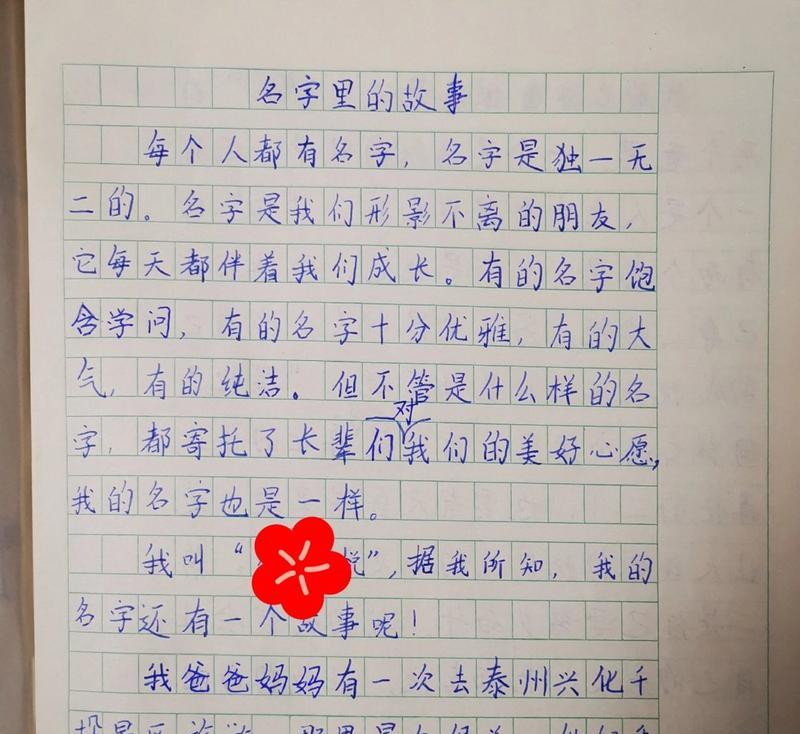 名字里的故事
每个人都有名字，名字是独一无
二的。名字是我们形影不离的朋友，
它每天都伴着我们成长。有的名字饱
含学问，有的名字十分优雅，有的大
气，有的纯洁。但不管是什么样的名
字，都寄托了长辈们对我们的美好心愿，
我的名字也是一样。
我叫“悦”，据我所知，我的
名字还有一个故事呢！
我爸爸妈妈有一次去泰州兴化千
垛